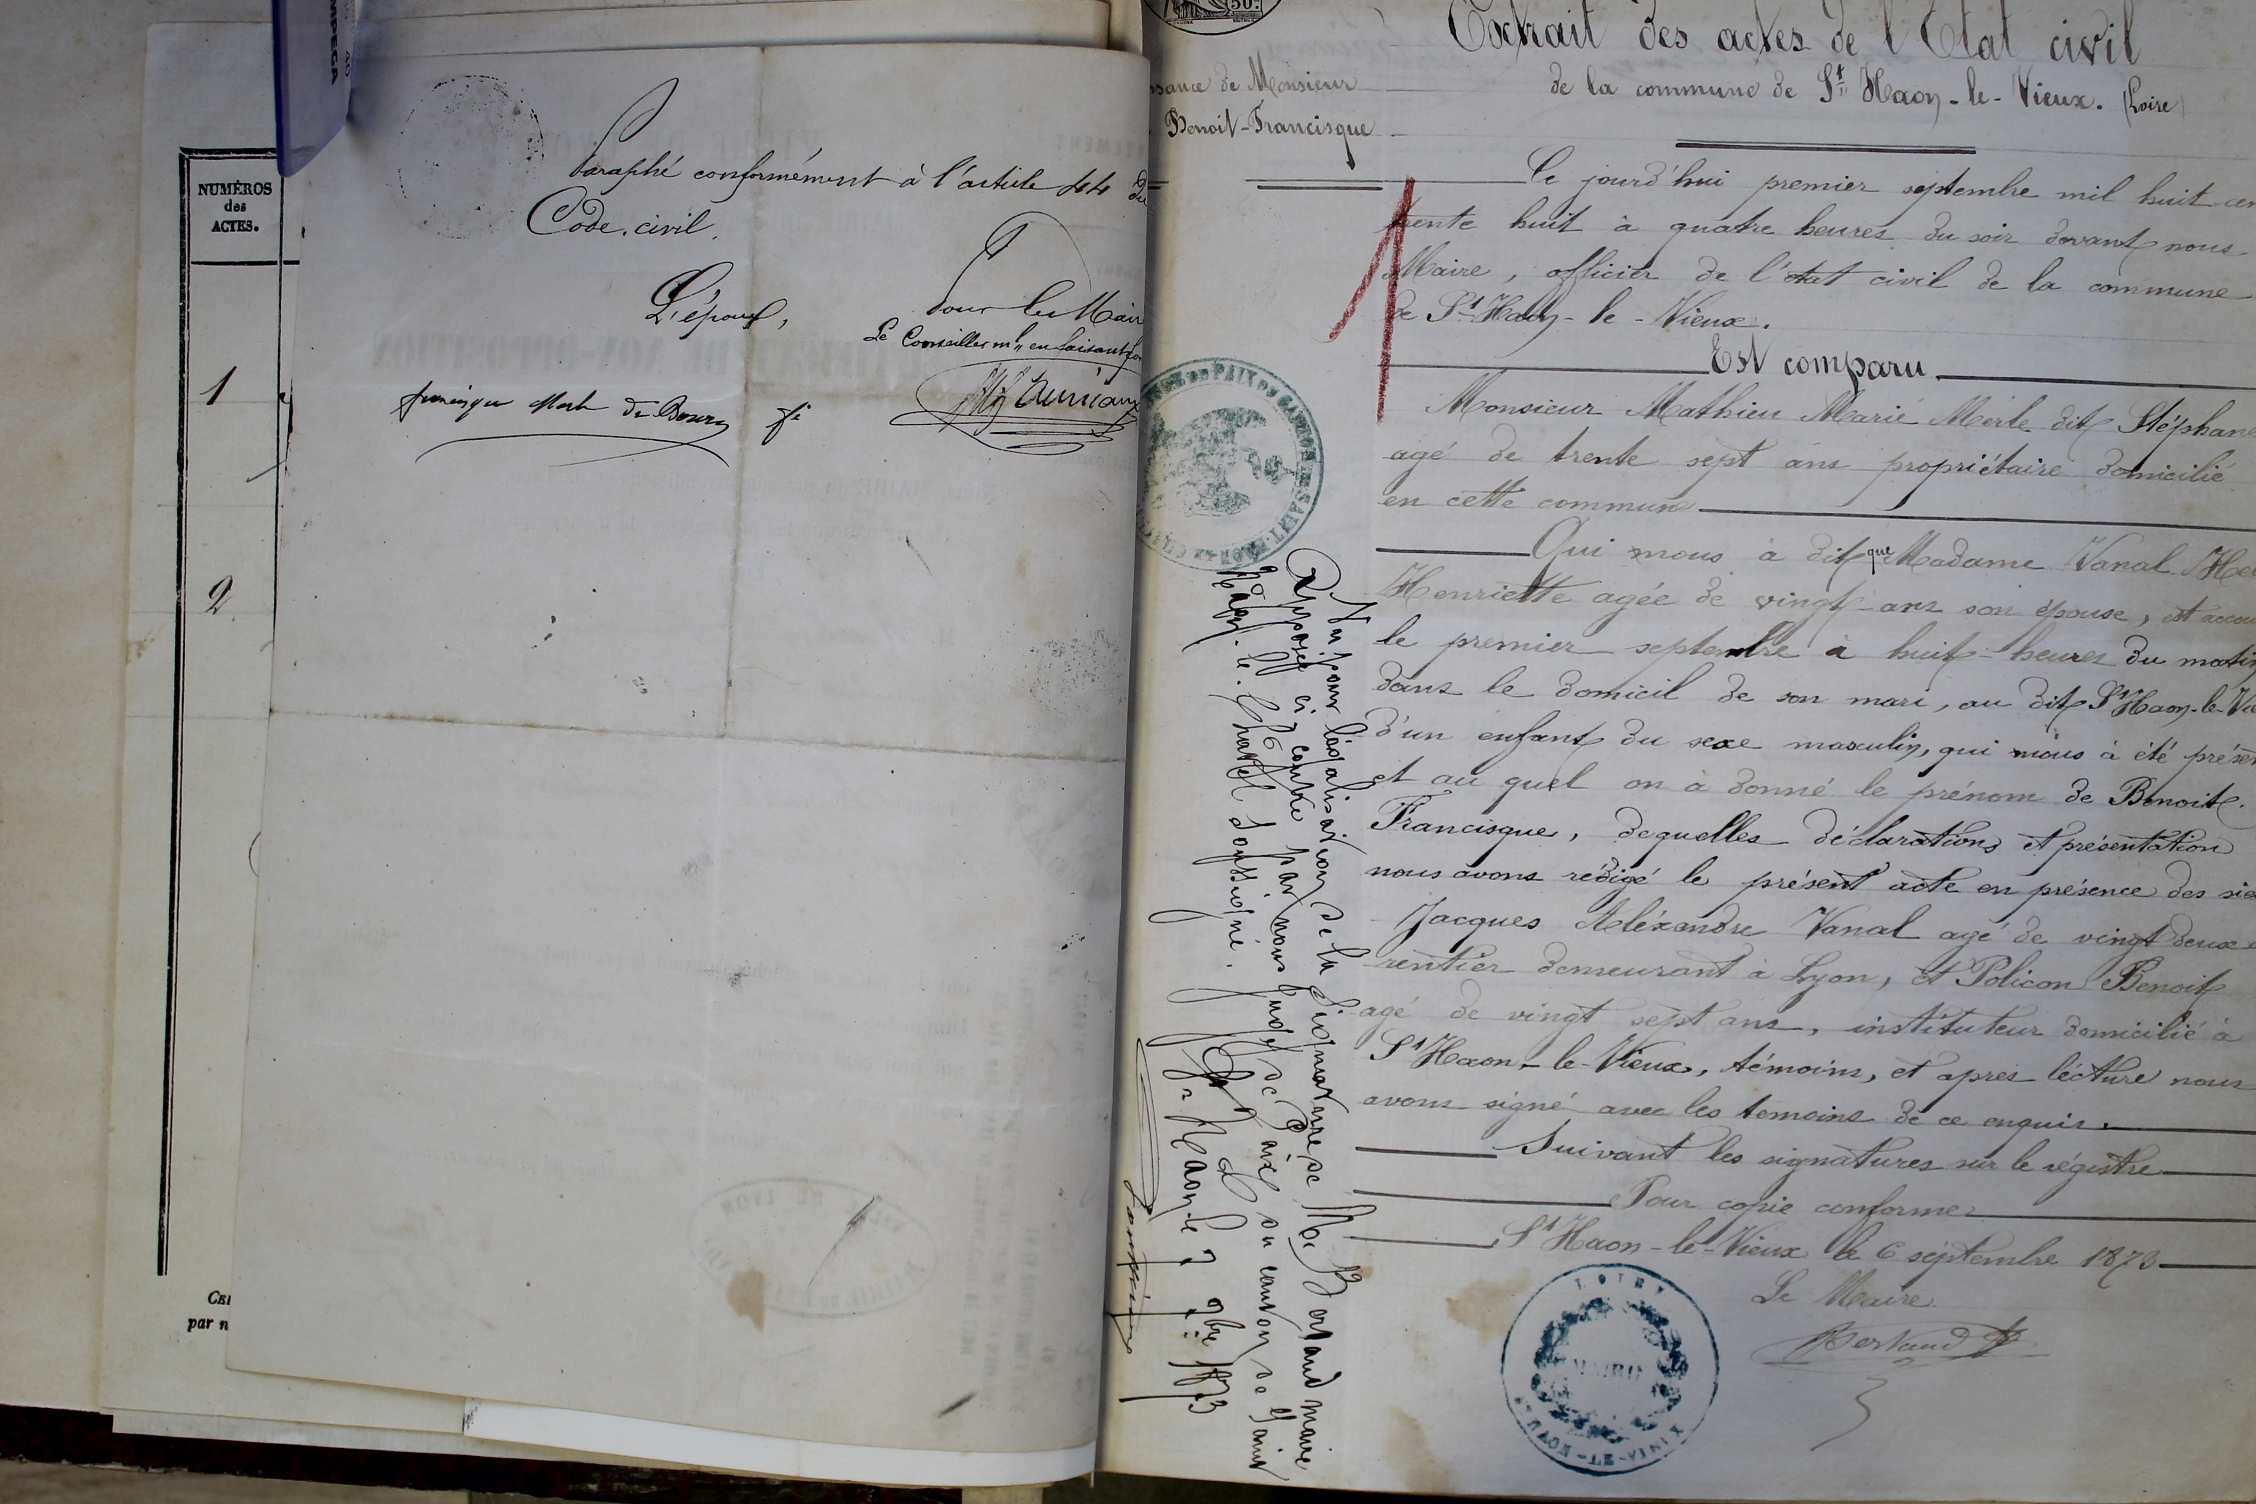 IMPEGA
40
50
NUMÉROS
des
ACTES.
1
2
par n
Paraphé conformément à l'article 44 du
Code civil.
L'époux,
Pour le Mair
Le Conseiller ml en faisant fon
Extrait des actes de l'Etat civil
de la commune de St Haon-le-Vieux. (Loire)
ssance de Monsieur
Benoit-Francisque
Ce jourd'hui premier septembre mil huit cen
trente huit à quatre heures du soir devant nous
Maire, officier de l'état civil de la commune
de St Haon-le-Vieux.
Est comparu
Monsieur Mathieu Marie Merle dit Stéphane
agé de trente sept ans propriétaire domicilié
en cette commune
Qui nous à dit que Madame Vanal
Henriette agée de vingt ans son épouse, est accou
le premier septembre à huit heures du matin
dans le domicil de son mari, au dit St Haon-le-Vie
d'un enfant du sexe masculin, qui nous à été présen
et au quel on à donné le prénom de Benoit
Francisque, dequelles déclarations et présentation
nous avons rédigé le présent acte en présence des sie
Jacques Aléxandre Vanal agé de vingt deux
rentier demeurant à Lyon, et Policon Benoit
agé de vingt sept ans, instituteur domicilié à
St Haon-le-Vieux, témoins, et apres lécture nous
avons signé avec les temoins de ce enquis.
Suivant les signatures sur le régistre
Pour copie conforme
St Haon-le-Vieux le 6 séptembre 1873
Le Maire
Bertaud
LOIRE
MAIRIE
Vu pour légalisation de la signature de Mr Bertaud maire
Apposée ci contre par nous Juge de Paix du canton de Saint
Haon-le-Chatel soussigné.
St Haon-le 7 9bre 1873